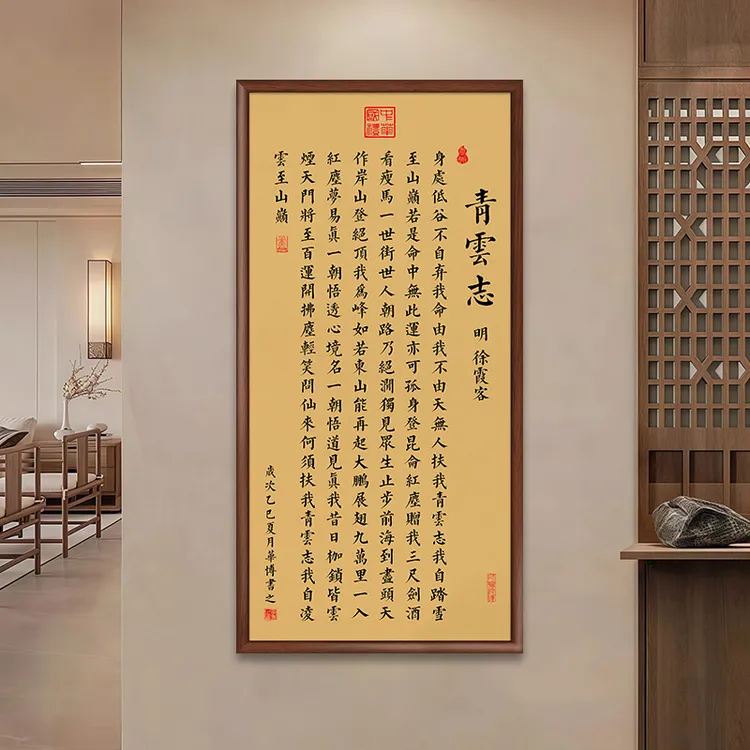 中華國禮
青雲志
明 徐霞客
身處低谷不自弃我命由我不由天無人扶我青雲志我自踏雪
至山巔若是命中無此運亦可孤身登昆侖紅塵贈我三尺劍酒
看瘦馬一世街世人朝路乃絕澗獨見眾生止步前海到盡頭天
作岸山登絕頂我爲峰如若東山能再起大鵬展翅九萬里一入
紅塵夢易眞一朝悟透心境名一朝悟道見眞我昔日枷鎖皆雲
煙天門將至百運開拂塵輕笑問仙來何須扶我青雲志我自凌
雲至山巔
歲次乙巳夏月華博書之